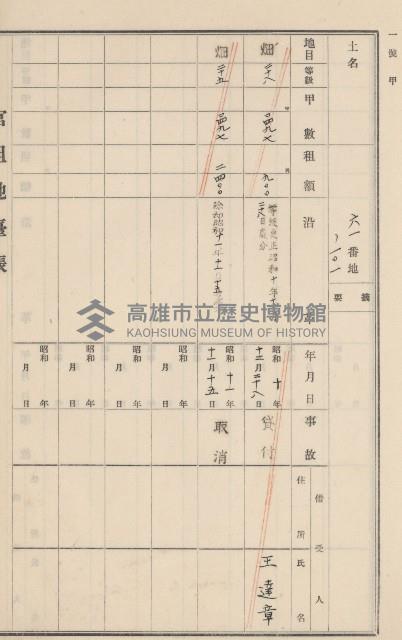 一號甲
土名
六一番地
ノ一〇一
摘要
地目
等級
甲數
租額
沿革
年月日
事故
借受人
住所
氏名
畑
二十八
甲
〇四九七
円
九〇〇
等級更正昭和十年十二月
二十八日處分
昭和十年
十二月二十八日
貸付
王達章
畑
二十五
〇四九七
二四〇〇
昭和十一年
十一月十五日
取消
昭和 年
月 日
昭和 年
月 日
昭和 年
月 日
官租地臺帳
高雄市立歷史博物館
KAOHSIUNG MUSEUM OF HISTORY